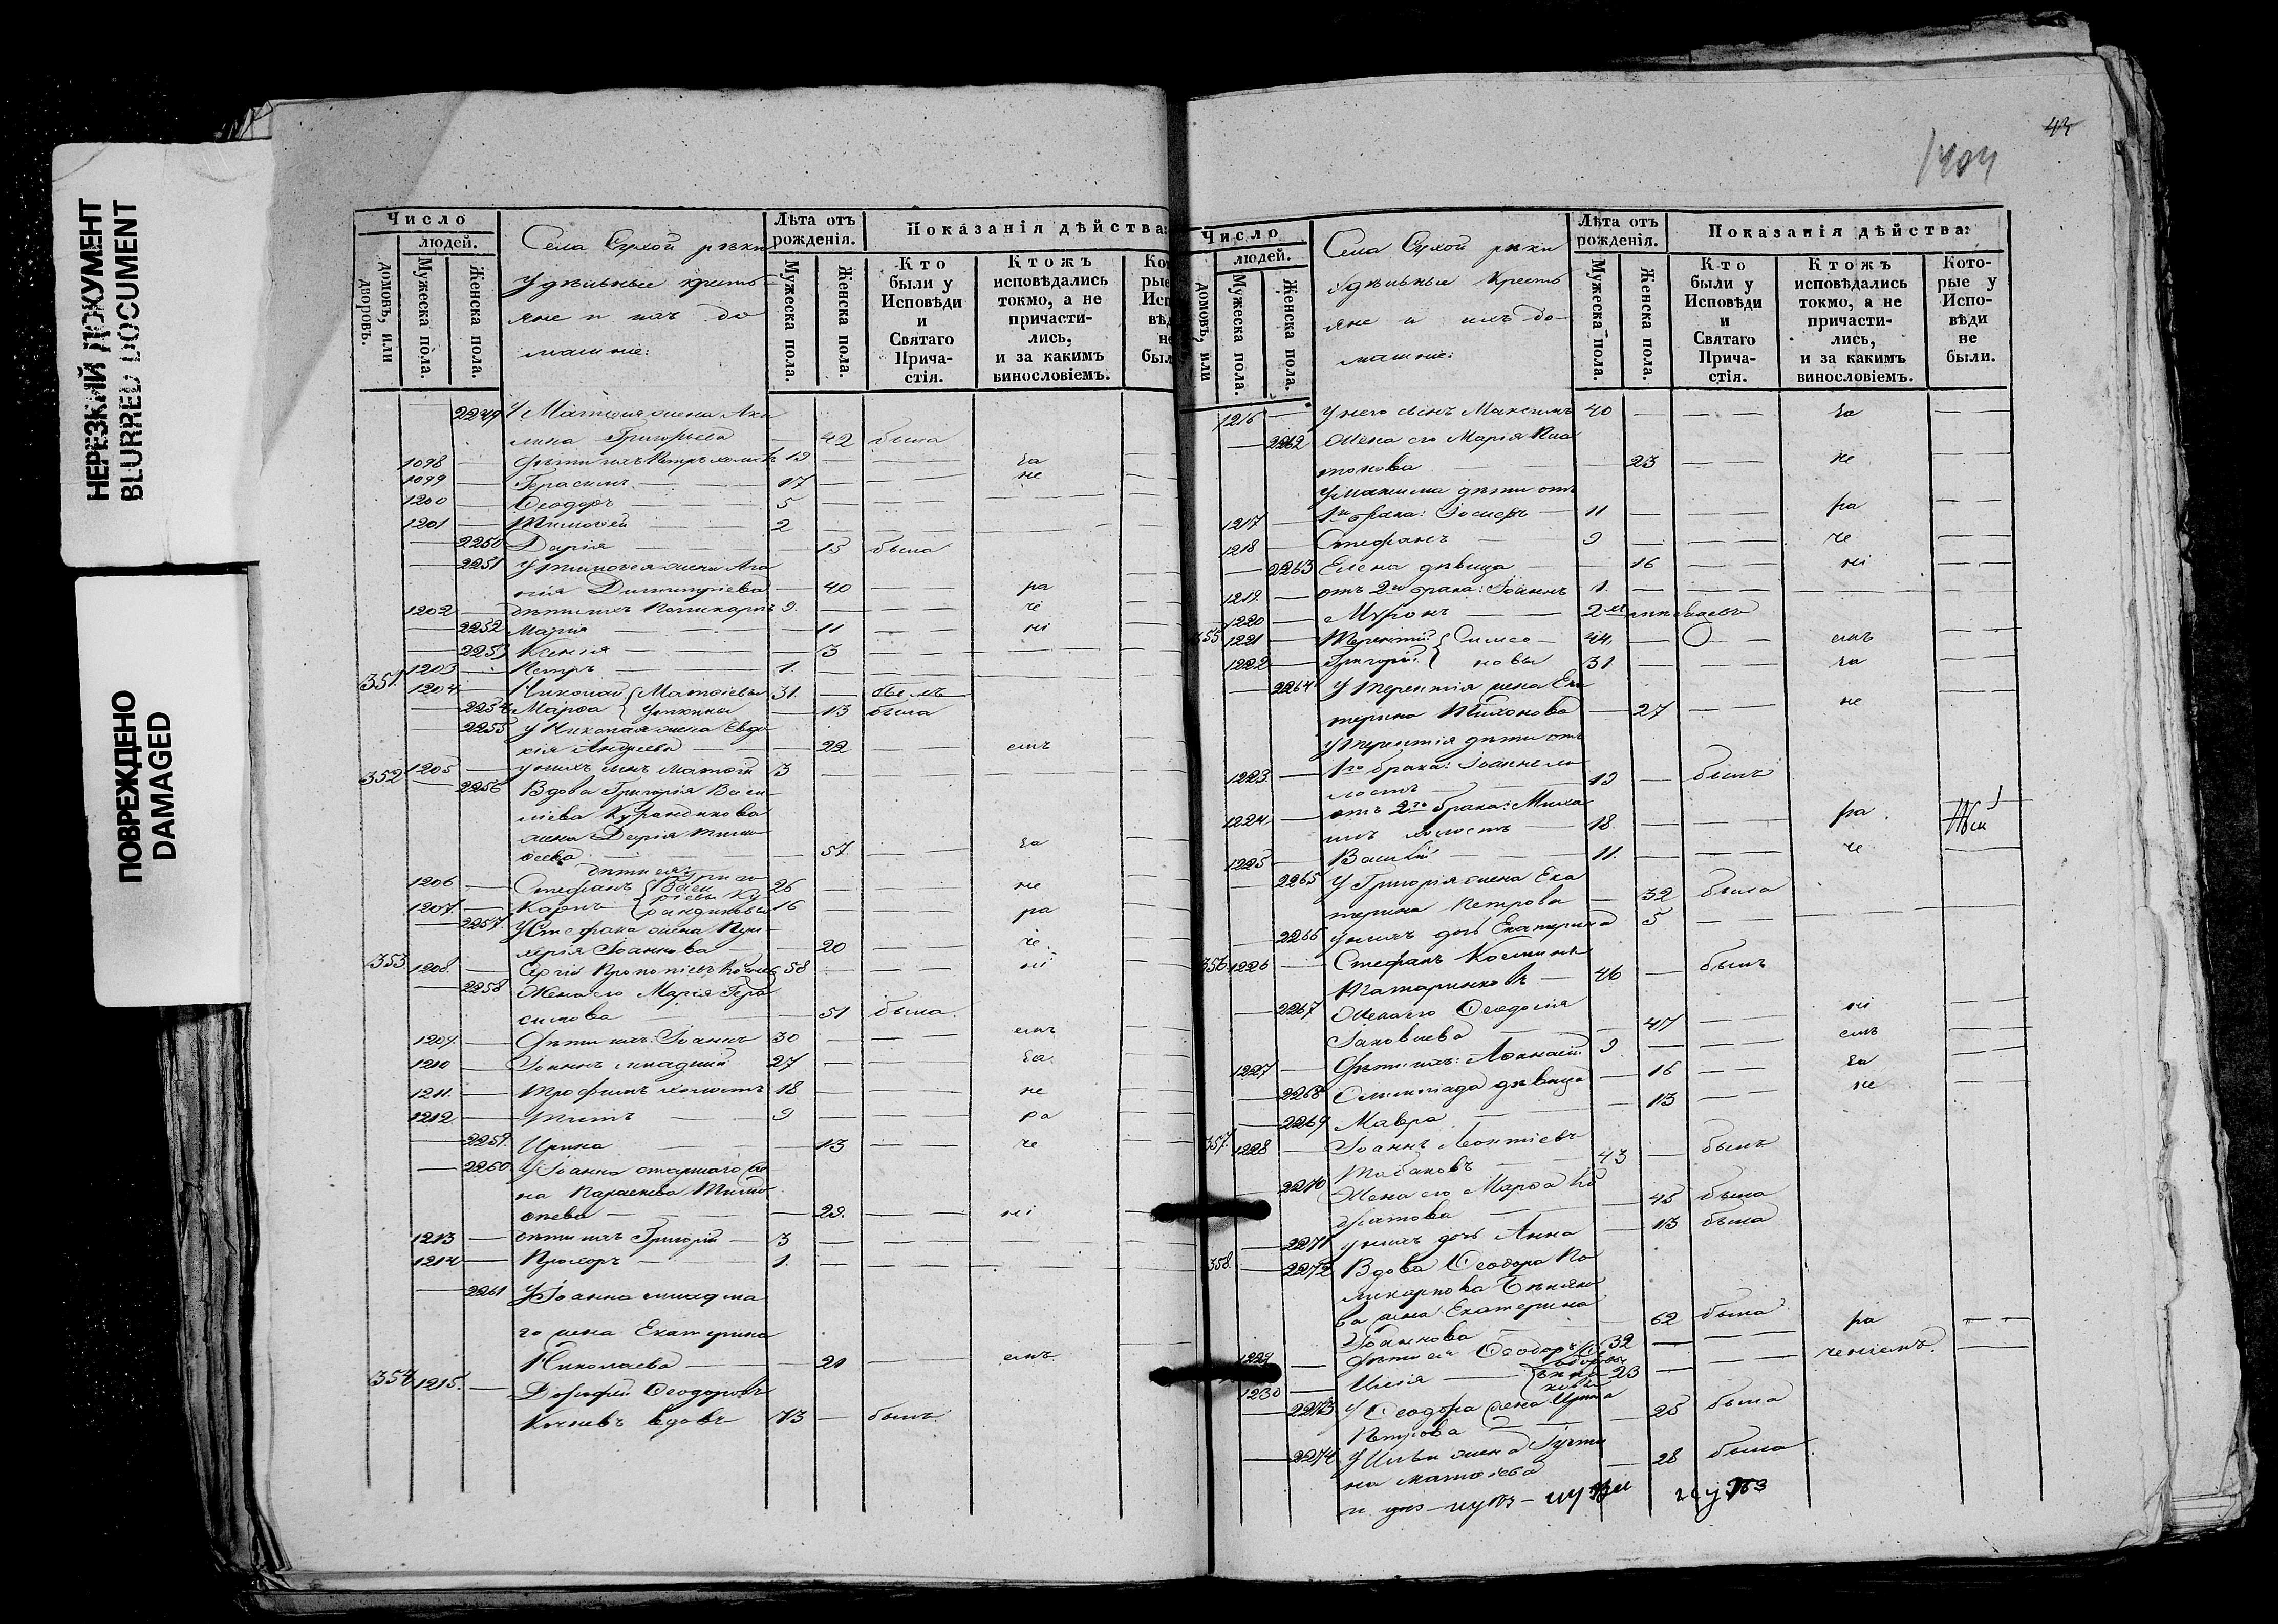 НЕРЕЗКИЙ ДОКУМЕНТ
BLURRED DOCUMENT
ПОВРЕЖДЕНО
DAMAGED
Число
людей.
домовъ, или дворовъ.
Мужеска пола.
Женска пола.
Села Сухой рѣки
удѣльные кресть-
яне и ихъ до
машніе:
Лѣта отъ рожденія.
Мужеска пола.
Женска пола.
Показанія дѣйства:
Кто были у Исповѣди и Святаго Прича- стія.
Ктожъ исповѣдались токмо, а не причасти- лись, и за какимъ винословіемъ.
2249 У Матѳея жена Аку
лина Григорьева — 42 была
1098 — дѣти ихъ Петръ холостъ 19 — за
1099 — Герасимъ 17 — не
1200 — Ѳеодоръ 5
1201 — Тимоѳей 2
2250 Дарія — 15 была
2251 У Тимоѳея жена Ага
ѳія Димитріева — 40 — ра
1202 — дѣти ихъ Поликарпъ 9 — че
2252 Марія — 11 — ні
2253 Ксенія — 3
1203 — Петръ 1
351. 1204 — Николай Матѳіевы 31. — былъ
2254 Марѳа — 13 была
2255 У Николая жена Евдо
кія Андреева — 22 — емъ
352 1205 — у нихъ сынъ Матѳей 3
2256 Вдова Григорія Васи
ліева Курандикова
жена Дарія Тимо
ѳеева — 57 — за
дѣти ея
1206 — Стефанъ 26 — не
1207. — Карпъ 16 — ра
2257. У Стефана жена Пул-
херія Іоаннова — 20 — че
353. 1208. — Сергій Прокопіевъ 58 — ні
2258 Жена его Марія Гера
симова — 51 была.
1209 — Дѣти ихъ: Іоаннъ 30 — емъ
1210 — Іоаннъ младшій 27 — за
1211. — Трофимъ холостъ 18 — не
1212. — Титъ 9 — ра
2259. Ирина — 13 — че
2260. У Іоанна старшаго же
на Параскева Тимо
ѳеева — 29. — ні
1213 — дѣти ихъ Григорій 3
1214 — Прохоръ 1.
2261 У Іоанна младша
го жена Екатерина
Николаева — 21 — емъ
354 1215. — Дороѳей Ѳеодоровъ
Кочневъ вдовъ 73 — былъ
43
1404
Число
людей.
домовъ, или
Мужеска пола
Женска пола.
Села Сухой рѣки
удѣльные Кресть
яне и ихъ до-
машніе:
Лѣта отъ рожденія.
Мужеска пола.
Женска пола.
Показанія дѣйства:
Кто были у Исповѣди и Святаго Прича- стія.
Ктожъ исповѣдались токмо, а не причасти- лись, и за какимъ винословіемъ.
Кото- рые у Испо- вѣди не были.
1216 — У него сынъ Максимъ 40 — за
2262 Жена его Марія Пла
тонова — 23 — не
У Максима дѣти отъ
1217 — 1го брака: Іосифъ 11 — ра
1218 — Стефанъ 9 — че
2263 Елена дѣвица — 16 — ні
1219. — отъ 2го брака: Іоаннъ 1.
1220 — Миронъ 2
355 1221 — Терентій Симео- 44. — емъ
1222 — Григорій новы 31. — за
2264 У Терентія жена Ека
терина Тихонова — 27 — не
У Терентія дѣти отъ
1223 — 1го брака: Іоаннъ хо
лостъ 19 — былъ
1224 — отъ 2го брака: Миха
илъ холостъ 18. — ра
1225 — Василій 11. — че
2265 У Григорія жена Ека
терина Петрова — 32 была
2266 у нихъ дочь Екатерина 5
356 1226 — Стефанъ Косминъ
Татаринковъ 46 — былъ
2267 Жена его Ѳеодосія
Іаковлева — 47 — ні
1227 — Дѣти ихъ: Аѳанасій 9 — емъ
2268 Олимпіада дѣвица — 16 — за
2269 Мавра — 13 — не
357. 1228 — Іоаннъ Леонтіевъ
Табаковъ 43 — былъ
2270 Жена его Марѳа Ко
дратова — 45 была
2271 у нихъ дочь Анна — 13 была
358. — 2272 Вдова Ѳеодора По
ликарпова
жена Екатерина
Іоаннова — 62 была
1229 — Дѣти ея Ѳеодоръ 32 — ра
1230 — Илія 23 — ченіемъ.
2273 У Ѳеодора жена Ирина
Петрова — 28 была
2274 У Иліи жена Іусти
на Матѳіева — 28 была